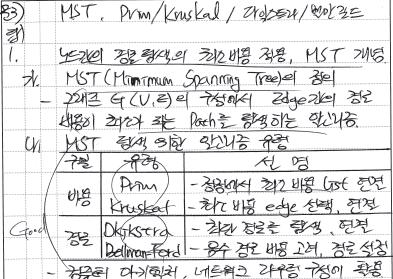 문3) MST, Prim/Kruskal / 다익스트라 / 벨만포드
답)
1. 노드간의 경로 탐색의 최소비용 적용, MST 개념
가. MST(Minimum Spanning Tree)의 정의
- 그래프 G(V,E)의 구성에서 Edge간의 경로
비용이 최소가 되는 Path를 탐색하는 알고리즘.
나. MST 탐색 위한 알고리즘 유형
구분 유형 설명
비용 Prim - 정점에서 최소 비용 Cost 연결
Kruskal - 최소 비용 edge 선택, 연결
Good
경로 Dijkstra - 최단 경로를 탐색, 연결
Bellman-Ford - 음수 경로 비용 고려, 경로 설정
- 네트워크 라우팅 구성에 활용